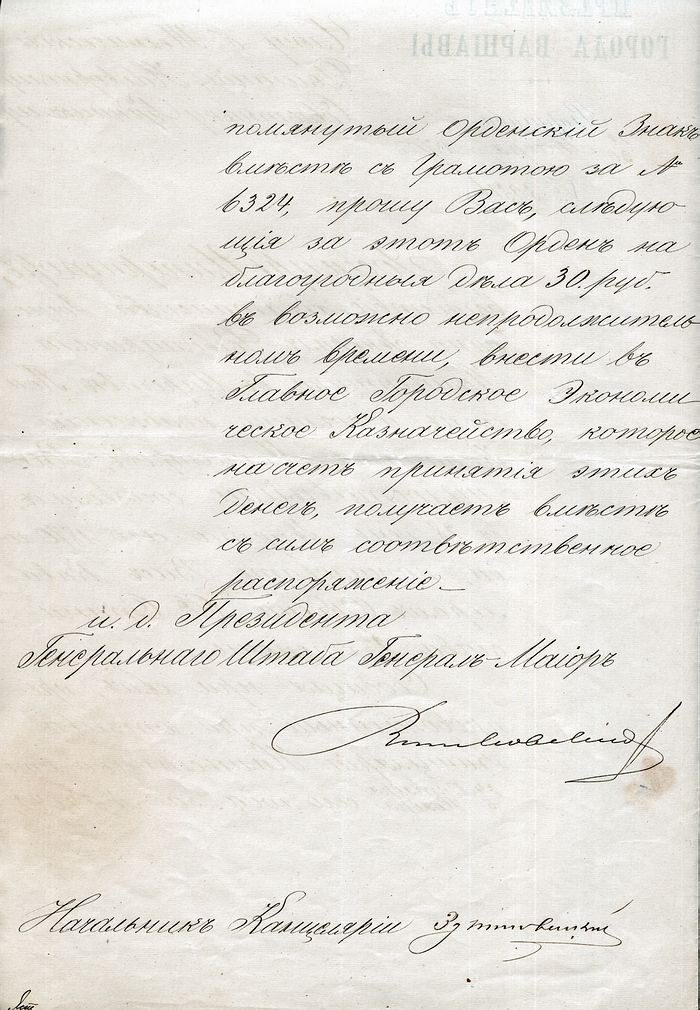 помянутый Орденскій Знакъ
вмѣстѣ съ Грамотою за №
6324, прошу Васъ, слѣдую
щія за этотъ Орденъ на
благоугодныя дѣла 30. руб.
въ возможно непродолжитель
номъ времени, внести въ
Главное Городское Экономи
ческое Казначейство, которое
на счетъ принятія этихъ
денегъ, получаетъ вмѣстѣ
съ симъ соотвѣтственное
распоряженіе_
и. д. Президента
Генеральнаго Штаба Генералъ-Маіоръ
Начальникъ Канцеляріи